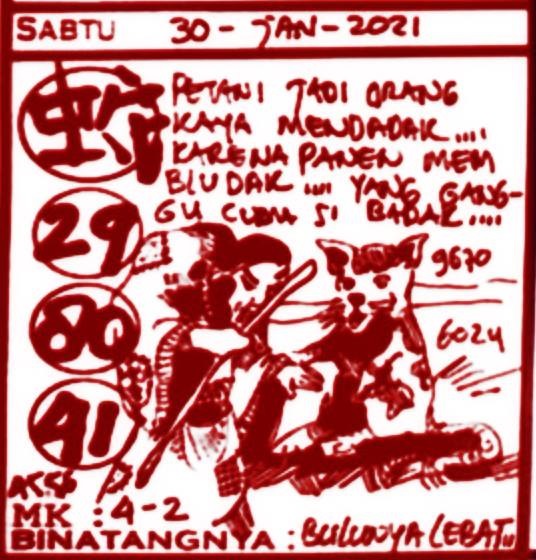 SABTU 30 - JAN - 2021
PETANI JADI ORANG
KAYA MENDADAK ....
KARENA PANEN MEM
BLUDAK .... YANG GANG-
GU CUMA SI BADAK ....
29
80
41
9670
6024
MK : 4-2
BINATANGNYA : BULUNYA LEBAT..